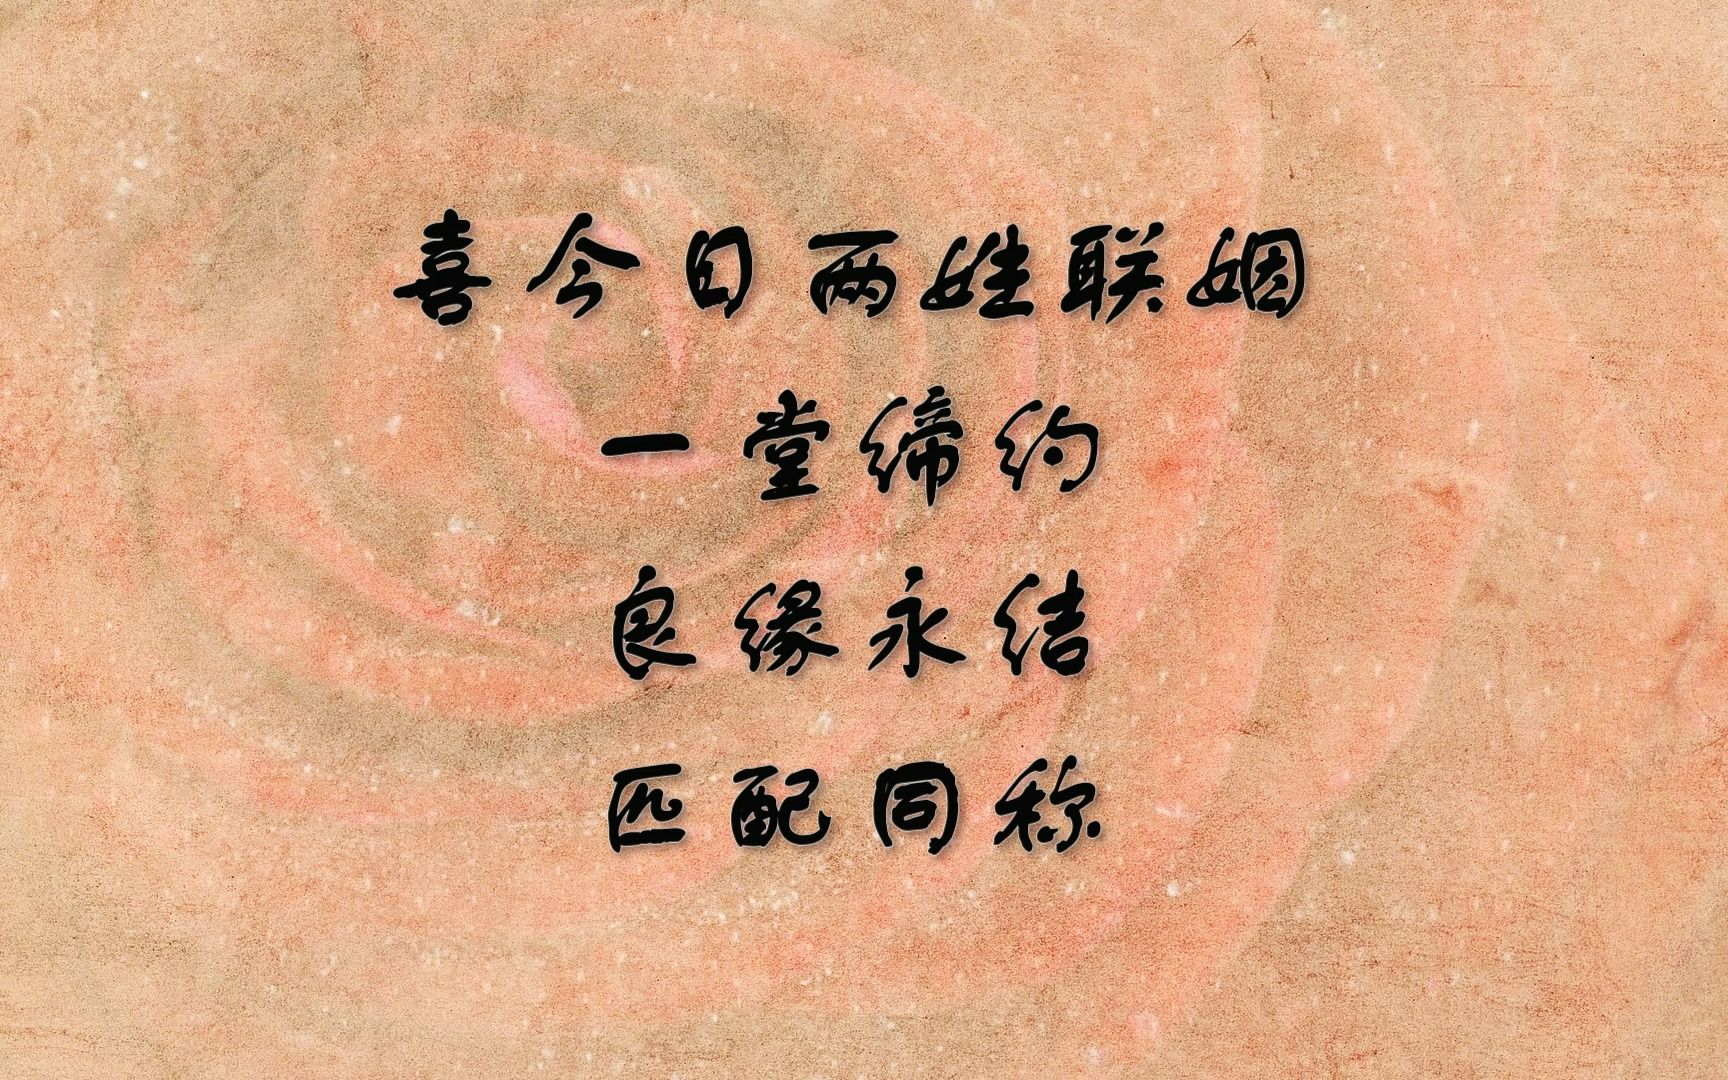 喜今日两姓联姻
一堂缔约
良缘永结
匹配同称